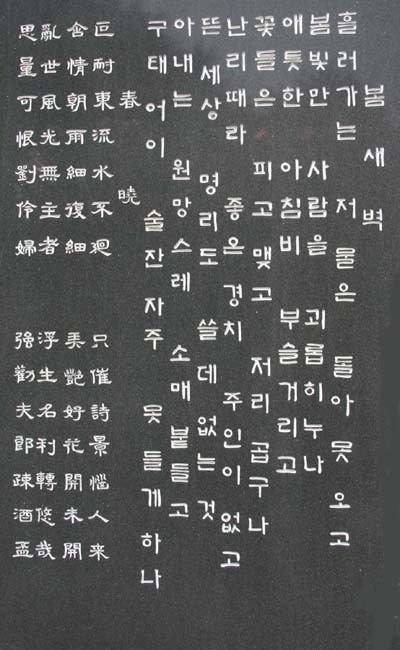 봄 새벽
흘러가는 저 물은 돌아 못 오고
봄빛만 사람을 괴롭히누나
애틋한 아침비 부슬거리고
꽃들은 피고 맺고 저리 곱구나
난리때라 좋은 경치 주인이 없고
뜬세상 명리도 쓸데없는 것
아내는 원망스레 소매 붙들고
구태어이 술잔자주 못 들게 하나
春曉
叵耐東流水不廻 只催詩景惱人来
含情朝雨細復細 美艶好花開未開
亂世風光無主者 浮生名利轉悠哉
思量可恨劉伶婦 強勸夫郎疎酒盃